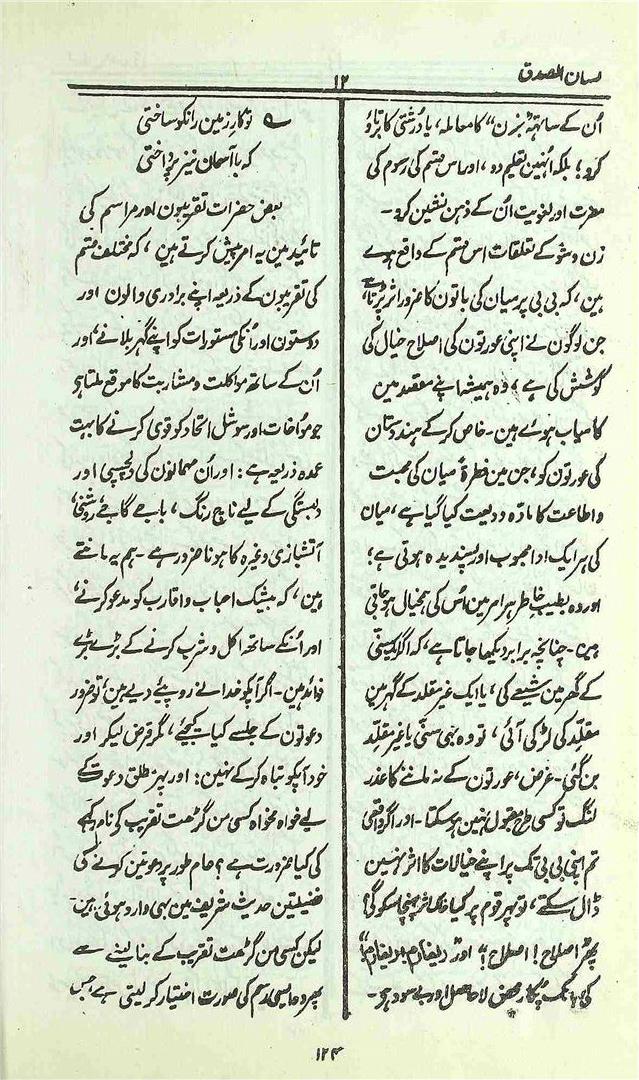 لسان الصدق
۱۲
اُن کے ساتھ "بزن" کا معاملہ، یا دُرشتی کا برتاؤ
کرو؛ بلکہ اُنہین تعلیم دو، اوراس قسم کی رسوم کی
مضرت اور لغویت اُن کے ذہن نشین کرو۔
زن و شو کے تعلقات اس قسم کے واقع ہوے
ہین، کہ بی بی پر میان کی باتون کا ضرور اثر پڑتا ہے،
جن لوگون نے اپنی عورتون کی اصلاح خیال کی
کوشش کی ہے، وہ ہمیشہ اپنے مقصد مین
کامیاب ہوئے ہین۔ خاص کر کے ہندوستان
کی عورتون کو، جن مین فطرۃً میان کی محبت
و اطاعت کا مادہ ودیعت کیا گیا ہے، میان
کی ہر ایک ادا محبوب اور پسندیدہ ہوتی ہے؛
اور وہ بطیب خاطر ہر امر مین اُس کی ہمخیال ہو جاتی
ہین۔ چنانچہ برابر دیکھا جاتا ہے، کہ اگر ایک سنّی
کے گھر مین شیعے کی، یا ایک غیر مقلد کے گھر مین
مقلّد کی لڑکی آئی، تو وہ بھی سنّی یا غیر مقلّد
بن گئی۔ غرض، عورتون کے نہ ماننے کا عذر
لنگ تو کسی طرح مقبول نہین ہو سکتا۔ اور اگر واقعی
تم اپنی بی بی تک پر اپنے خیالات کا اثر نہین
ڈال سکتے، تو پھر قوم پر کیا خاک اثر پہنچا سکو گے؟
پھر اصلاح! اصلاح!" اور "ریفارم! ریفارم"
کی ہانک پکار محض لا حاصل اور بے سود ہے۔
تو کارِ زمین را نکو ساختی
کہ با آسمان نیز پرداختی
بعض حضرات تقریبون اور مراسم کی
تائید مین یہ امر پیش کرتے ہین، کہ مختلف قسم
کی تقریبون کے ذریعہ اپنے برادری والون اور
دوستون اور اُنکی مستورات کو اپنے گھر بلانے، اور
اُن کے ساتھ مواکلت و مشاربت کا موقع ملتا ہے
جو مواخات اور سوشل اتحاد کو قوی کرنے کا بہت
عمدہ ذریعہ ہے: اور اُن مہمانون کی دلچسپی اور
دلبستگی کے لیے ناچ رنگ، باجے گاجے، روشنی،
آتشبازی وغیرہ کا ہونا ضرور ہے۔ ہم یہ مانتے
ہین، کہ بیشک احباب و اقارب کو مدعو کرنے،
اور اُنکے ساتھ اکل و شرب کرنے کے بڑے بڑے
فوائد ہین۔ اگر آپکو خدا نے روپئے دیے ہین، تو ضرور
دعوتون کے جلسے کیا کیجیے، مگر قرض لیکر اور
خود آپکو تباہ کر کے نہین: اور پھر مطلق دعوت کے
لیے خواہ مخواہ کسی من گڑھت تقریب کی نام دہی
کی کیا ضرورت ہے؟ عام طور پر دعوتین کرنے کی
فضیلتین حدیث شریف مین بھی وارد ہوئی ہین۔
لیکن کسی من گڑھت تقریب کے بنا لینے سے
پھر وہ ایسی رسم کی صورت اختیار کر لیتی ہے، جس
۱۲۴